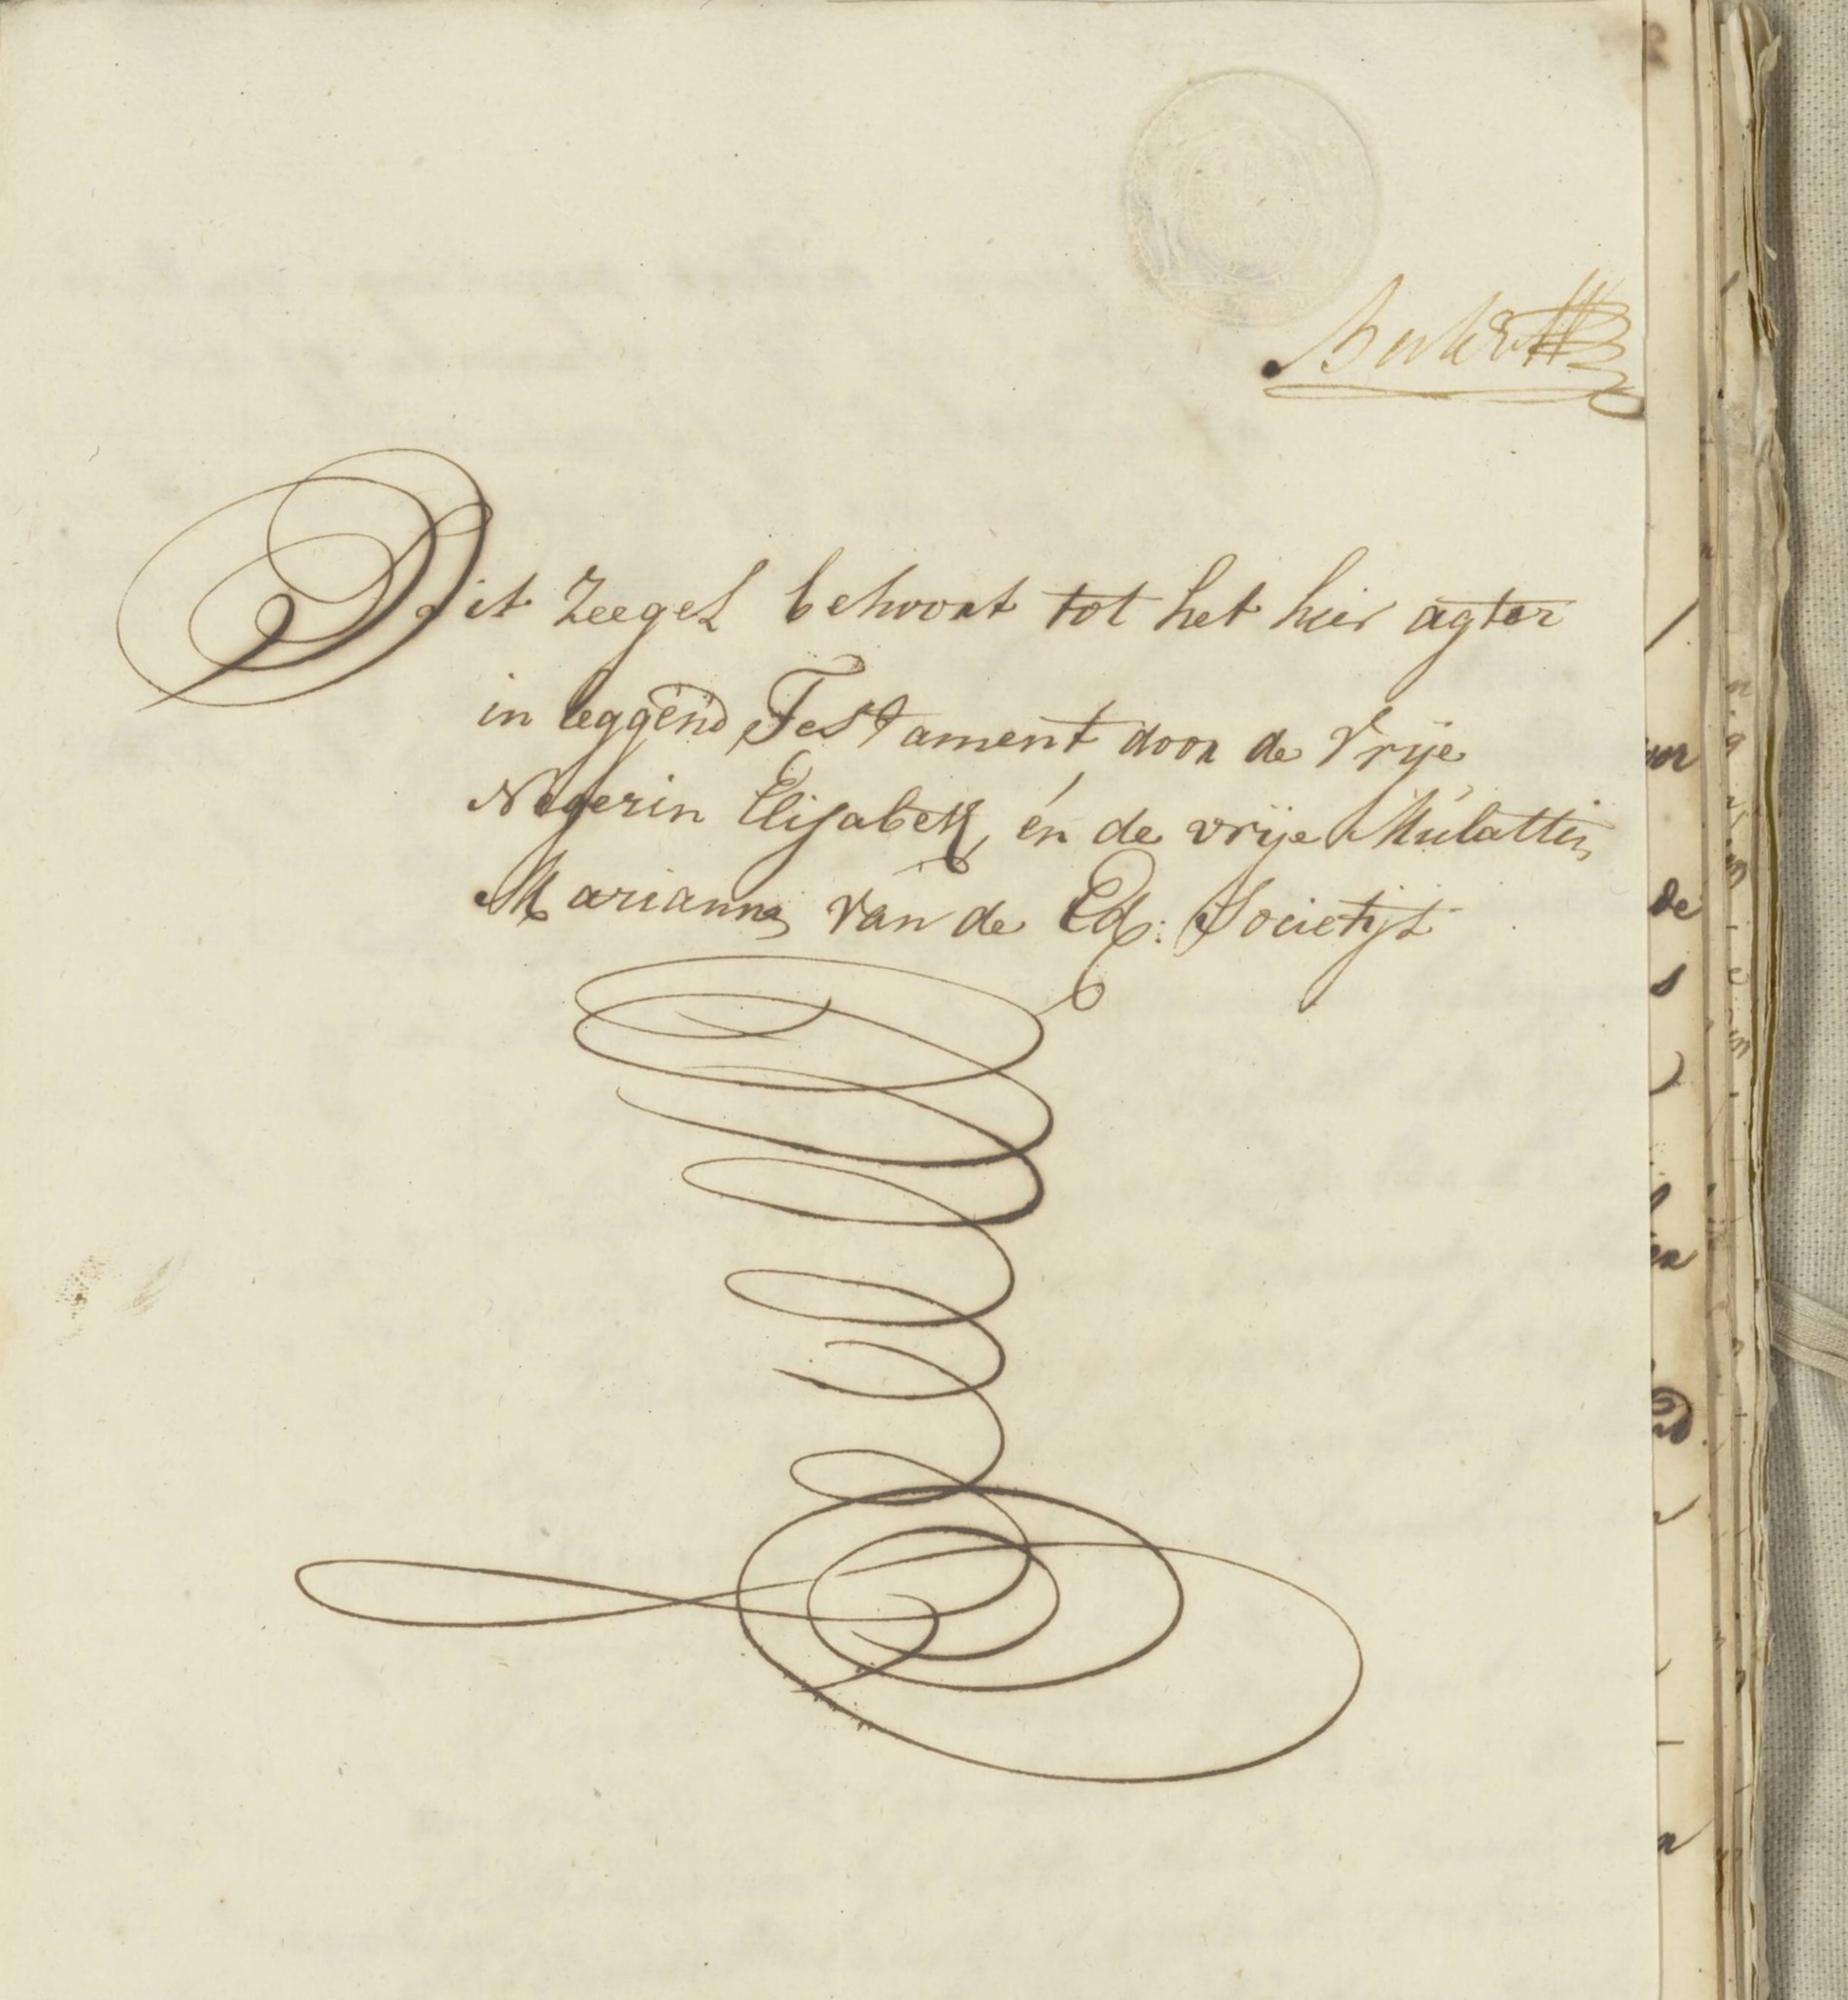 Dit Zeegel behoort tot het hier agter
in leggend Testament door de Vrije
Negerin Elisabeth, en de vrije Mulattin
Marianna van de Ed: Societijt